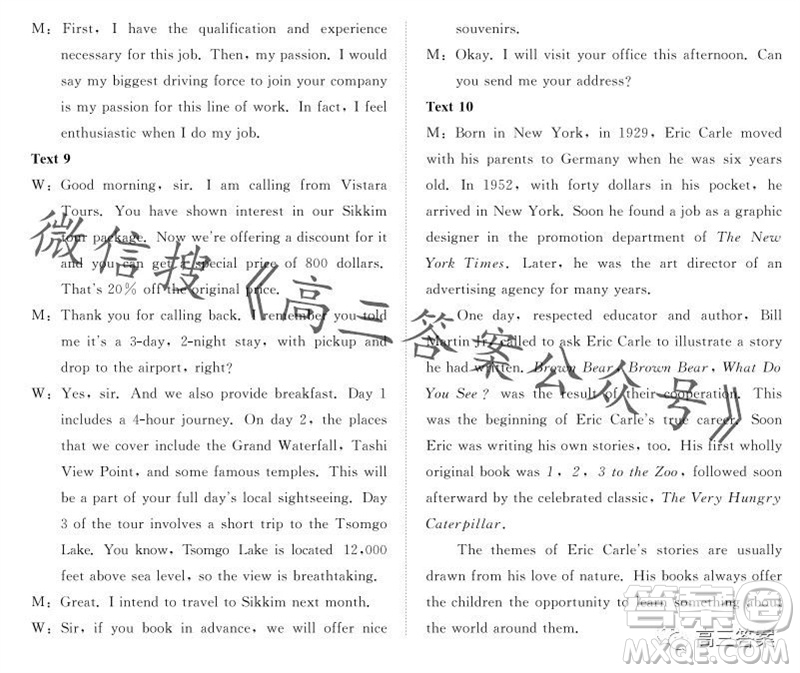 M: First, I have the qualification and experience
necessary for this job. Then, my passion. I would
say my biggest driving force to join your company
is my passion for this line of work. In fact, I feel
enthusiastic when I do my job.
Text 9
W: Good morning, sir. I am calling from Vistara
Tours. You have shown interest in our Sikkim
tour package. Now we're offering a discount for it
and you can get a special price of 800 dollars.
That's 20% off the original price.
M: Thank you for calling back. I remember you told
me it's a 3-day, 2-night stay, with pickup and
drop to the airport, right?
W: Yes, sir. And we also provide breakfast. Day 1
includes a 4-hour journey. On day 2, the places
that we cover include the Grand Waterfall, Tashi
View Point, and some famous temples. This will
be a part of your full day's local sightseeing. Day
3 of the tour involves a short trip to the Tsomgo
Lake. You know, Tsomgo Lake is located 12,000
feet above sea level, so the view is breathtaking.
M: Great. I intend to travel to Sikkim next month.
W: Sir, if you book in advance, we will offer nice
souvenirs.
M: Okay. I will visit your office this afternoon. Can
you send me your address?
Text 10
M: Born in New York, in 1929, Eric Carle moved
with his parents to Germany when he was six years
old. In 1952, with forty dollars in his pocket, he
arrived in New York. Soon he found a job as a graphic
designer in the promotion department of The New
York Times. Later, he was the art director of an
advertising agency for many years.
One day, respected educator and author, Bill
Martin Jr. called to ask Eric Carle to illustrate a story
he had written. Brown Bear, Brown Bear, What Do
You See? was the result of their cooperation. This
was the beginning of Eric Carle's true career. Soon
Eric was writing his own stories, too. His first wholly
original book was 1, 2, 3 to the Zoo, followed soon
afterward by the celebrated classic, The Very Hungry
Caterpillar.
The themes of Eric Carle's stories are usually
drawn from his love of nature. His books always offer
the children the opportunity to learn something about
the world around them.
微信搜《高三答案公众号》
答案圈
MXQE.COM
高三答案